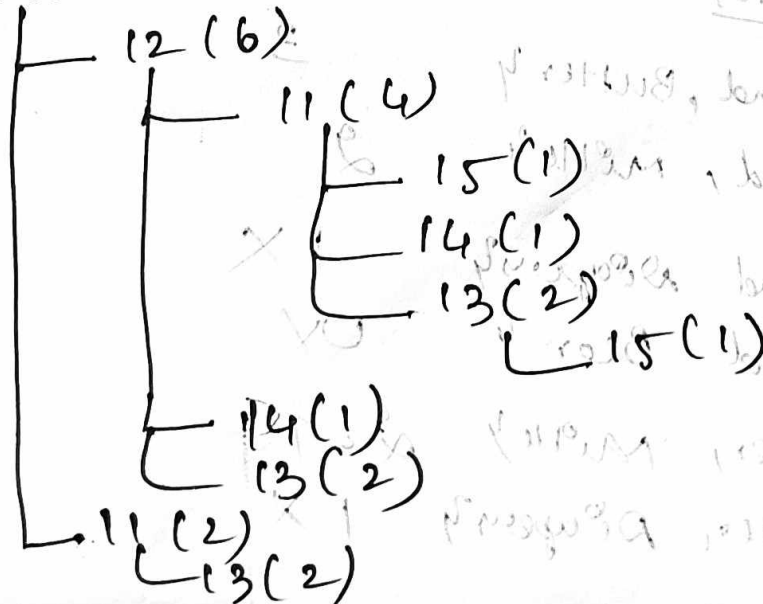 12 (6)
11 (4)
15 (1)
14 (1)
13 (2)
15 (1)
14 (1)
13 (2)
11 (2)
13 (2)